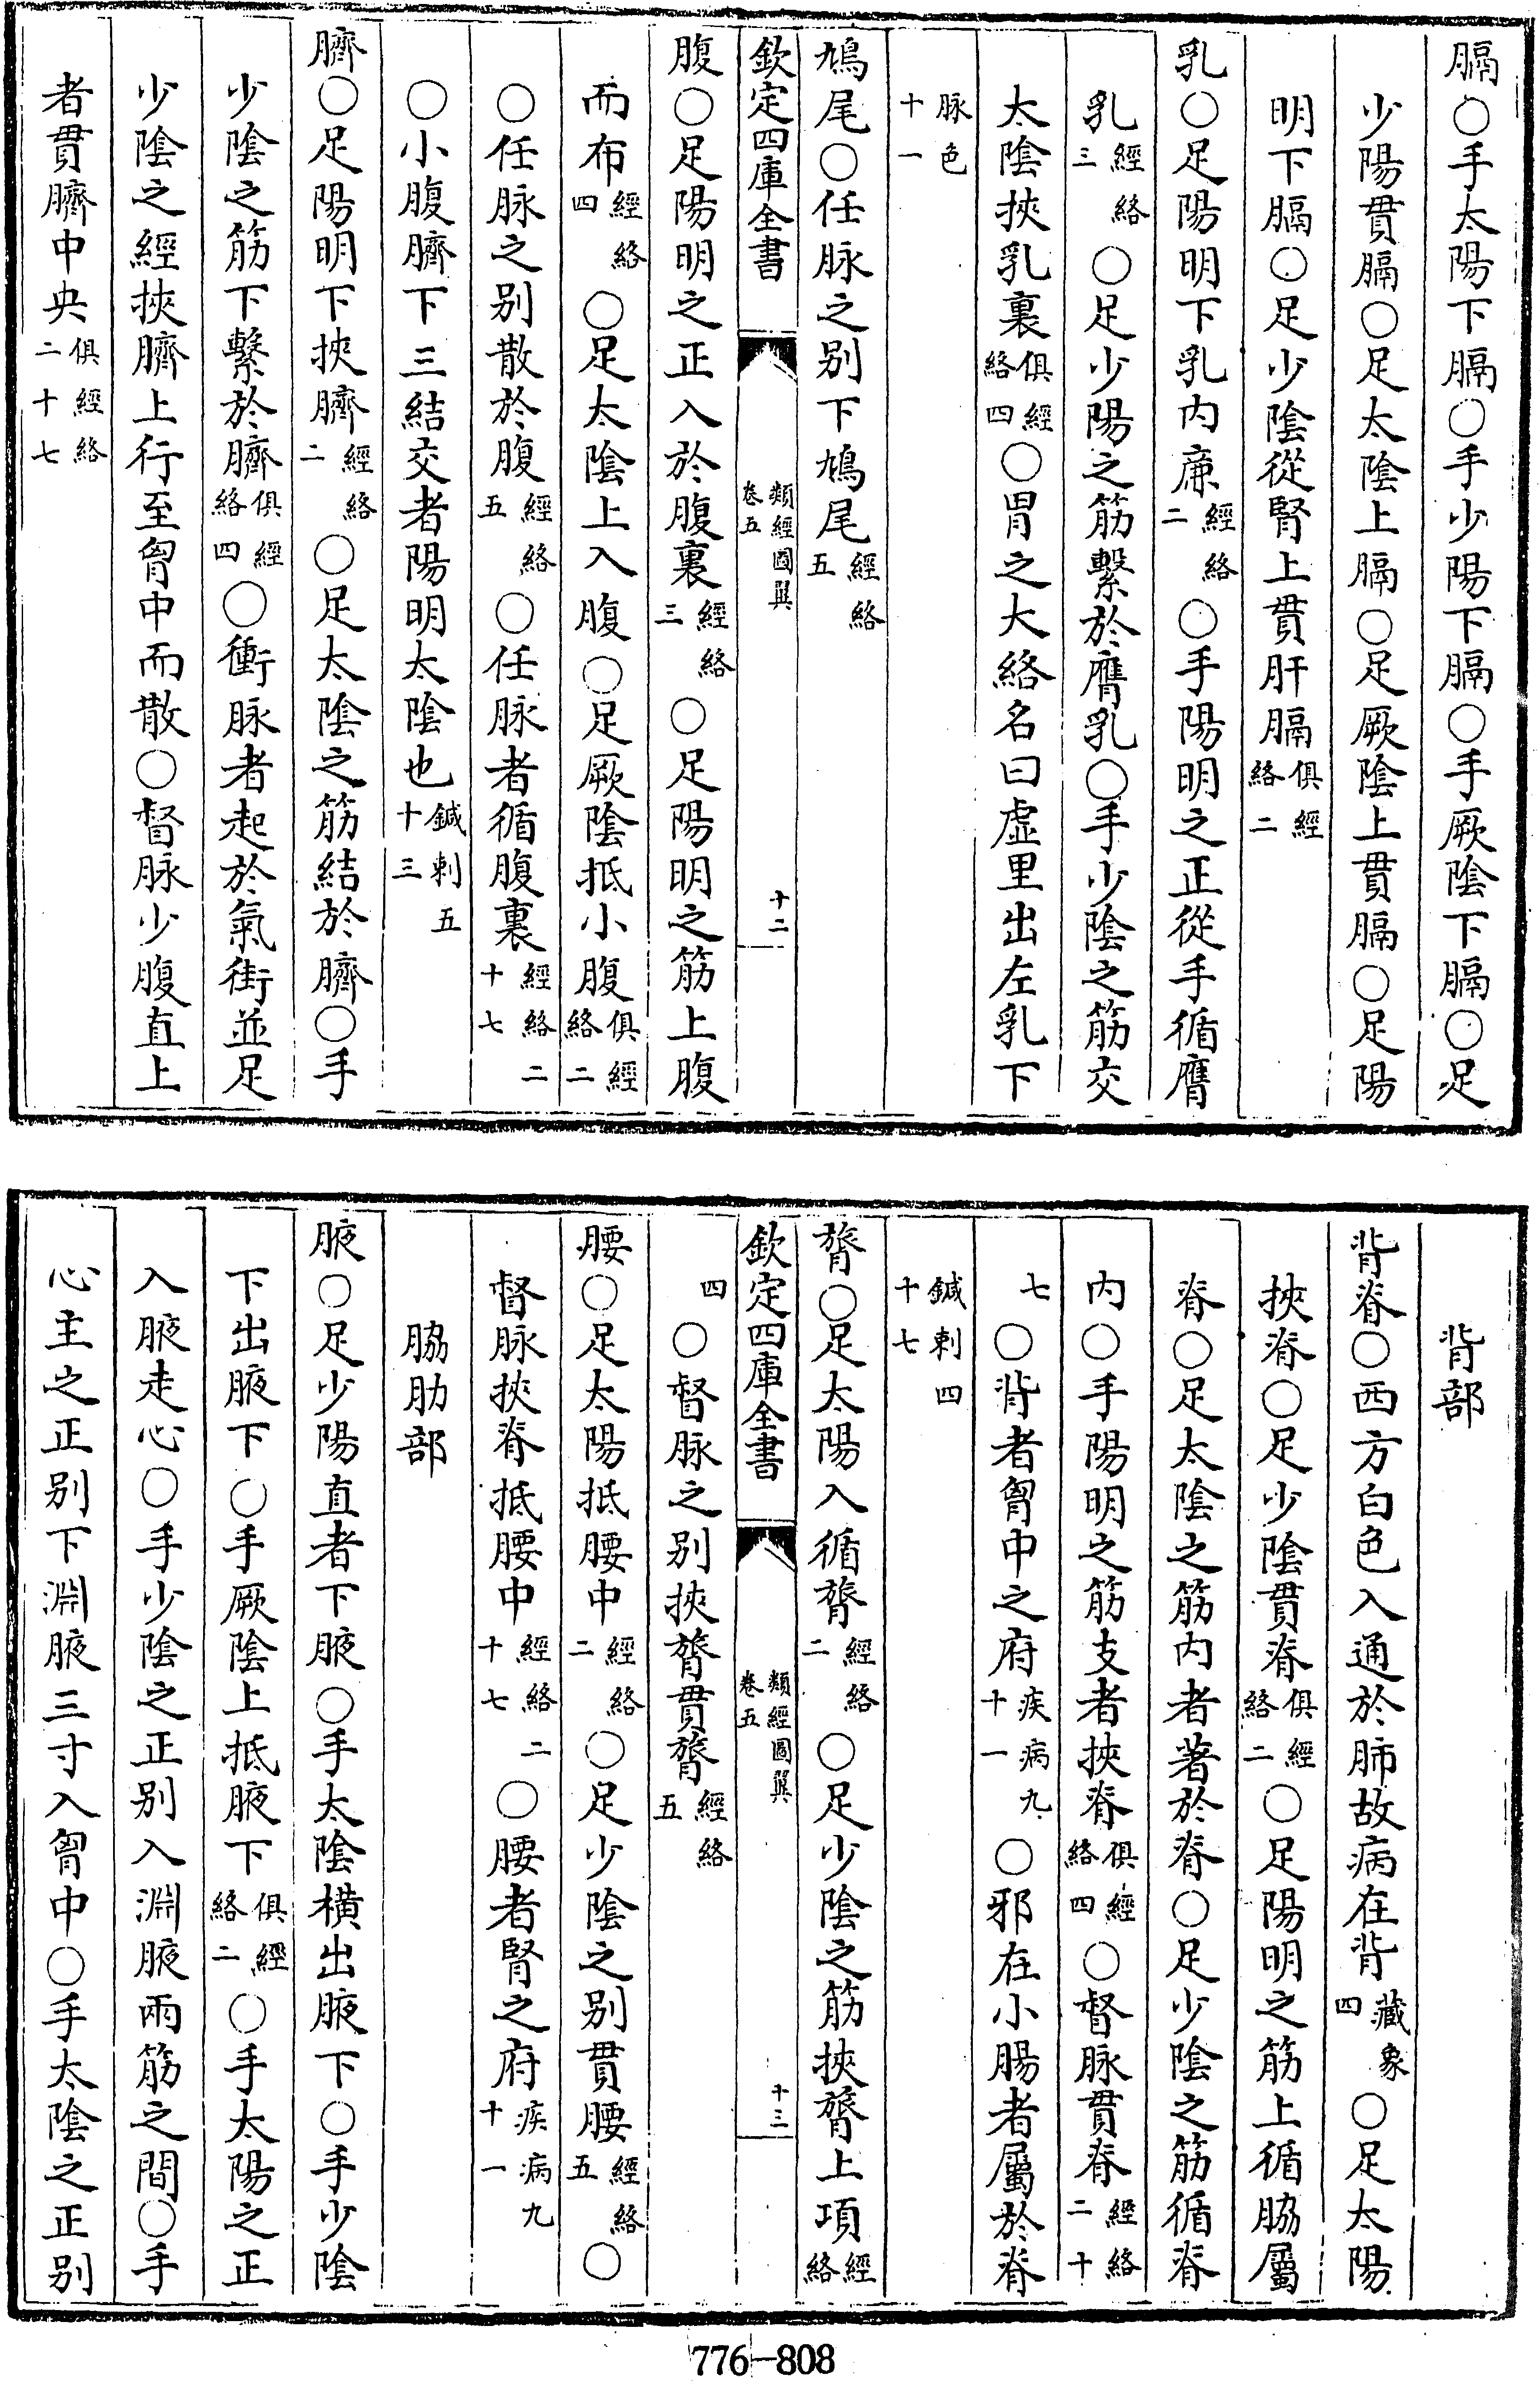 膈○手太陽下膈○手少陽下膈○手厥陰下膈○足
少陽貫膈○足太陰上膈○足厥陰上貫膈○足陽
明下膈○足少陰從腎上貫肝膈俱經絡二
乳○足陽明下乳内亷經絡二○手陽明之正從手循膺
乳經絡三○足少陽之筋繫於膺乳○手少陰之筋交
太陰挾乳裏俱經絡四○胃之大絡名曰虛里出左乳下
脉色十一
鳩尾○任脉之别下鳩尾經絡五
欽定四庫全書 類經圖翼卷五 十二
腹○足陽明之正入於腹裏經絡三○足陽明之筋上腹
而布經絡四○足太陰上入腹○足厥陰抵小腹俱經絡二
○任脉之别散於腹經絡五○任脉者循腹裏經絡二十七
○小腹臍下三結交者陽明太陰也鍼刺五十三
臍○足陽明下挾臍經絡二○足太陰之筋結於臍○手
少陰之筋下繫於臍俱經絡四○衝脉者起於氣街並足
少陰之經挾臍上行至胷中而散○督脉少腹直上
者貫臍中央俱經絡二十七
背部
背脊○西方白色入通於肺故病在背藏象四○足太陽
挾脊○足少陰貫脊俱經絡二○足陽明之筋上循脇屬
脊○足太陰之筋内者著於脊○足少陰之筋循脊
内○手陽明之筋支者挾脊俱經絡四○督脉貫脊經絡二十
七○背者胷中之府疾病九十一○邪在小腸者屬於脊
鍼刺四十七
膂○足太陽入循膂經絡二○足少陰之筋挾膂上項經絡
欽定四庫全書 類經圖翼卷五 十三
四○督脉之别挾膂貫膂經絡五
腰○足太陽抵腰中經絡二○足少陰之别貫腰經絡五○
督脉挾脊抵腰中經絡二十七○腰者腎之府疾病九十一
脇肋部
腋○足少陽直者下腋○手太陰橫出腋下○手少陰
下出腋下○手厥陰上抵腋下俱經絡二○手太陽之正
入腋走心○手少陰之正别入淵腋兩筋之間○手
心主之正别下淵腋三寸入胷中○手太陰之正别
776-808